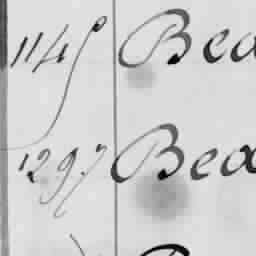 1145 Bea
1297 Bea